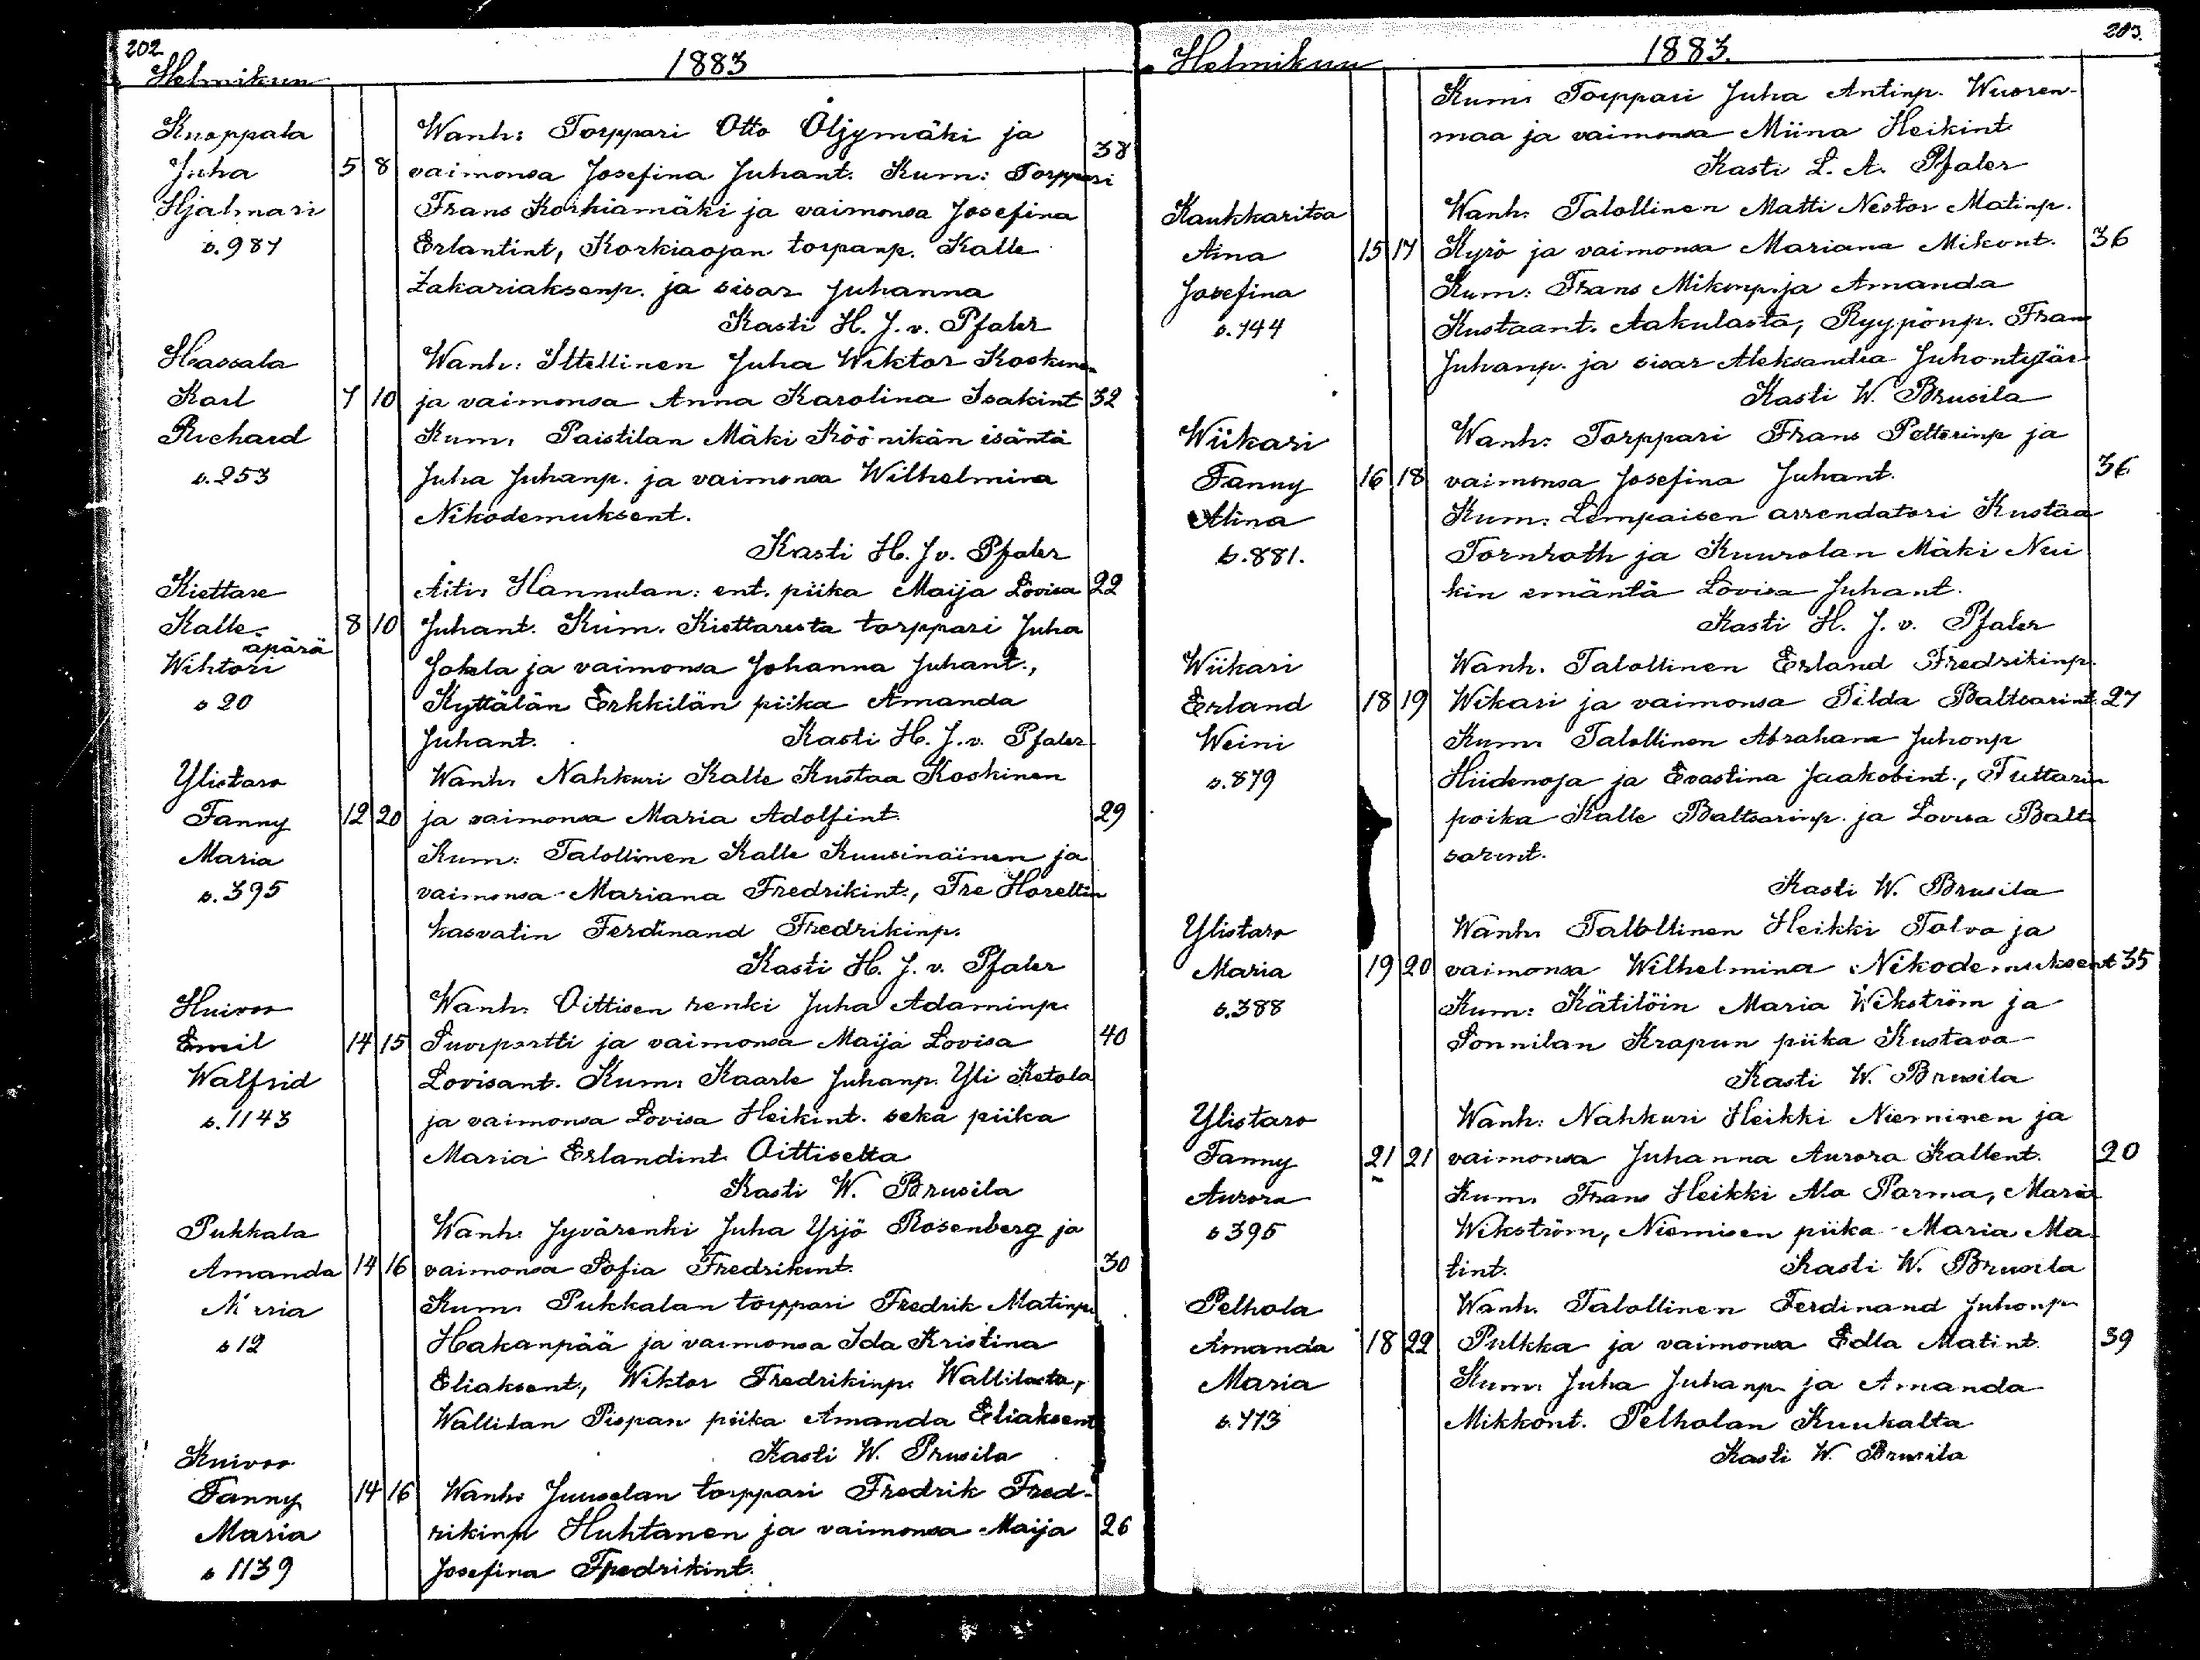 202
Helmikuun
1883
Knoppala
Juha
Hjalmari
s. 987
5 8
Wanh: Torppari Otto Öljymäki ja
vaimonsa Josefina Juhant. Kum: Torppari
38
Frans Korkiamäki ja vaimonsa Josefina
Erlantint, Korkiaojan torpanp. Kalle
Zakariaksenp. ja sisar Juhanna
Kasti H. J. v. Pfaler
Hassala
Karl
Richard
s. 253
7 10
Wanh: Ittellinen Juha Wiktor Koskinen
ja vaimonsa Anna Karolina Isakint
32
Kum: Paistilan Mäki Köönikän isäntä
Juha Juhanp. ja vaimonsa Wilhelmina
Nikodemuksent.
Kasti H. J v. Pfaler
Kiettare
Kalle
apärä
Wihtori
s 20
8 10
Äiti: Hannulan: ent. piika Maija Lovisa
22
Juhant. Kum. Kiettaresta torppari Juha
Jokela ja vaimonsa Johanna Juhant.,
Kyttälän Erkkilän piika Amanda
Juhant. Kasti H. J. v. Pfaler
Ylistaro
Fanny
Maria
s. 395
12 20
Wanh: Nahkuri Kalle Kustaa Koskinen
ja vaimonsa Maria Adolfint.
29
Kum: Talollinen Kalle Kuusinainen ja
vaimonsa Mariana Fredrikint., Tre Horeltin
kasvatin Ferdinand Fredrikinp.
Kasti H. J. v. Pfaler
Huivoo
Emil
Walfrid
s. 1143
14 15
Wanh: Oittisen renki Juha Adaminp.
Suorportti ja vaimonsa Maija Lovisa
40
Lovisant. Kum: Kaarle Juhanp. Yli Ketola
ja vaimonsa Lovisa Heikint. sekä piika
Maria Erlandint Oittiselta
Kasti W. Brusila
Pukkala
Amanda
Maria
s 12
14 16
Wanh. Jyvärenki Juha Yrjö Rosenberg ja
vaimonsa Sofia Fredrikint.
30
Kum: Pukkalan torppari Fredrik Matinp.
Hakanpää ja vaimonsa Ida Kristina
Eliaksent, Wiktor Fredrikinp. Wallilasta,
Wallilan Pispan piika Amanda Eliaksent
Kasti W. Brusila
Knivoo
Fanny
Maria
s 1139
14 16
Wanh: Juuselan torppari Fredrik Fred-
rikinp Huhtanen ja vaimonsa Maija
26
Josefina Fredrikint.
203.
Helmikuu
1883.
Kum: Torppari Juha Antinp. Wuoren-
maa ja vaimonsa Miina Heikint
Kasti L. A. Pfaler
Kaukkaritsa
Aina
Josefina
s. 744
15 17
Wanh. Talollinen Matti Nestor Matinp.
Kyrö ja vaimonsa Mariana Mikont.
36
Kum: Frans Mikonp. ja Amanda
Kustaant. Aakulasta, Ryypönp. Frans
Juhanp. ja sisar Aleksandra Juhontytär
Kasti W. Brusila
Wiikari
Fanny
Alina
s. 881.
16 18
Wanh: Torppari Frans Petterinp ja
vaimonsa Josefina Juhant.
36
Kum: Lempaisen arrendatori Kustaa
Tornroth ja Kuurolan Mäki Nui
kin emäntä Lovisa Juhant.
Kasti H. J. v. Pfaler
Wiikari
Erland
Weini
s. 879
18 19
Wanh. Talollinen Erland Fredrikinp.
Wikari ja vaimonsa Tilda Baltsarint.
27
Kum: Talollinen Abraham Juhonp
Hiidenoja ja Evastina Jaakobint., Tuttarin
poika Kalle Baltsarinp. ja Lovisa Balt-
sarint.
Kasti W. Brusila
Ylistaro
Maria
s. 388
19 20
Wanh: Talollinen Heikki Talvo ja
vaimonsa Wilhelmina Nikodemuksent
35
Kum: Kätilöin Maria Wikström ja
Sonnilan Krapun piika Kustava
Kasti W. Brusila
Ylistaro
Fanny
Aurora
s 395
21 21
Wanh: Nahkuri Heikki Nieminen ja
vaimonsa Juhanna Aurora Kallent.
20
Kum: Frans Heikki Ala Parma, Maria
Wikström, Niemisen piika Maria Ma-
tint. Kasti W. Brusila
Pelhola
Amanda
Maria
s. 773
18 22
Wanh. Talollinen Ferdinand Juhonp
Pulkka ja vaimonsa Edla Matint.
39
Kum: Juha Juhanp. ja Amanda
Mikkont. Pelholan Kuukalta
Kasti W. Brusila